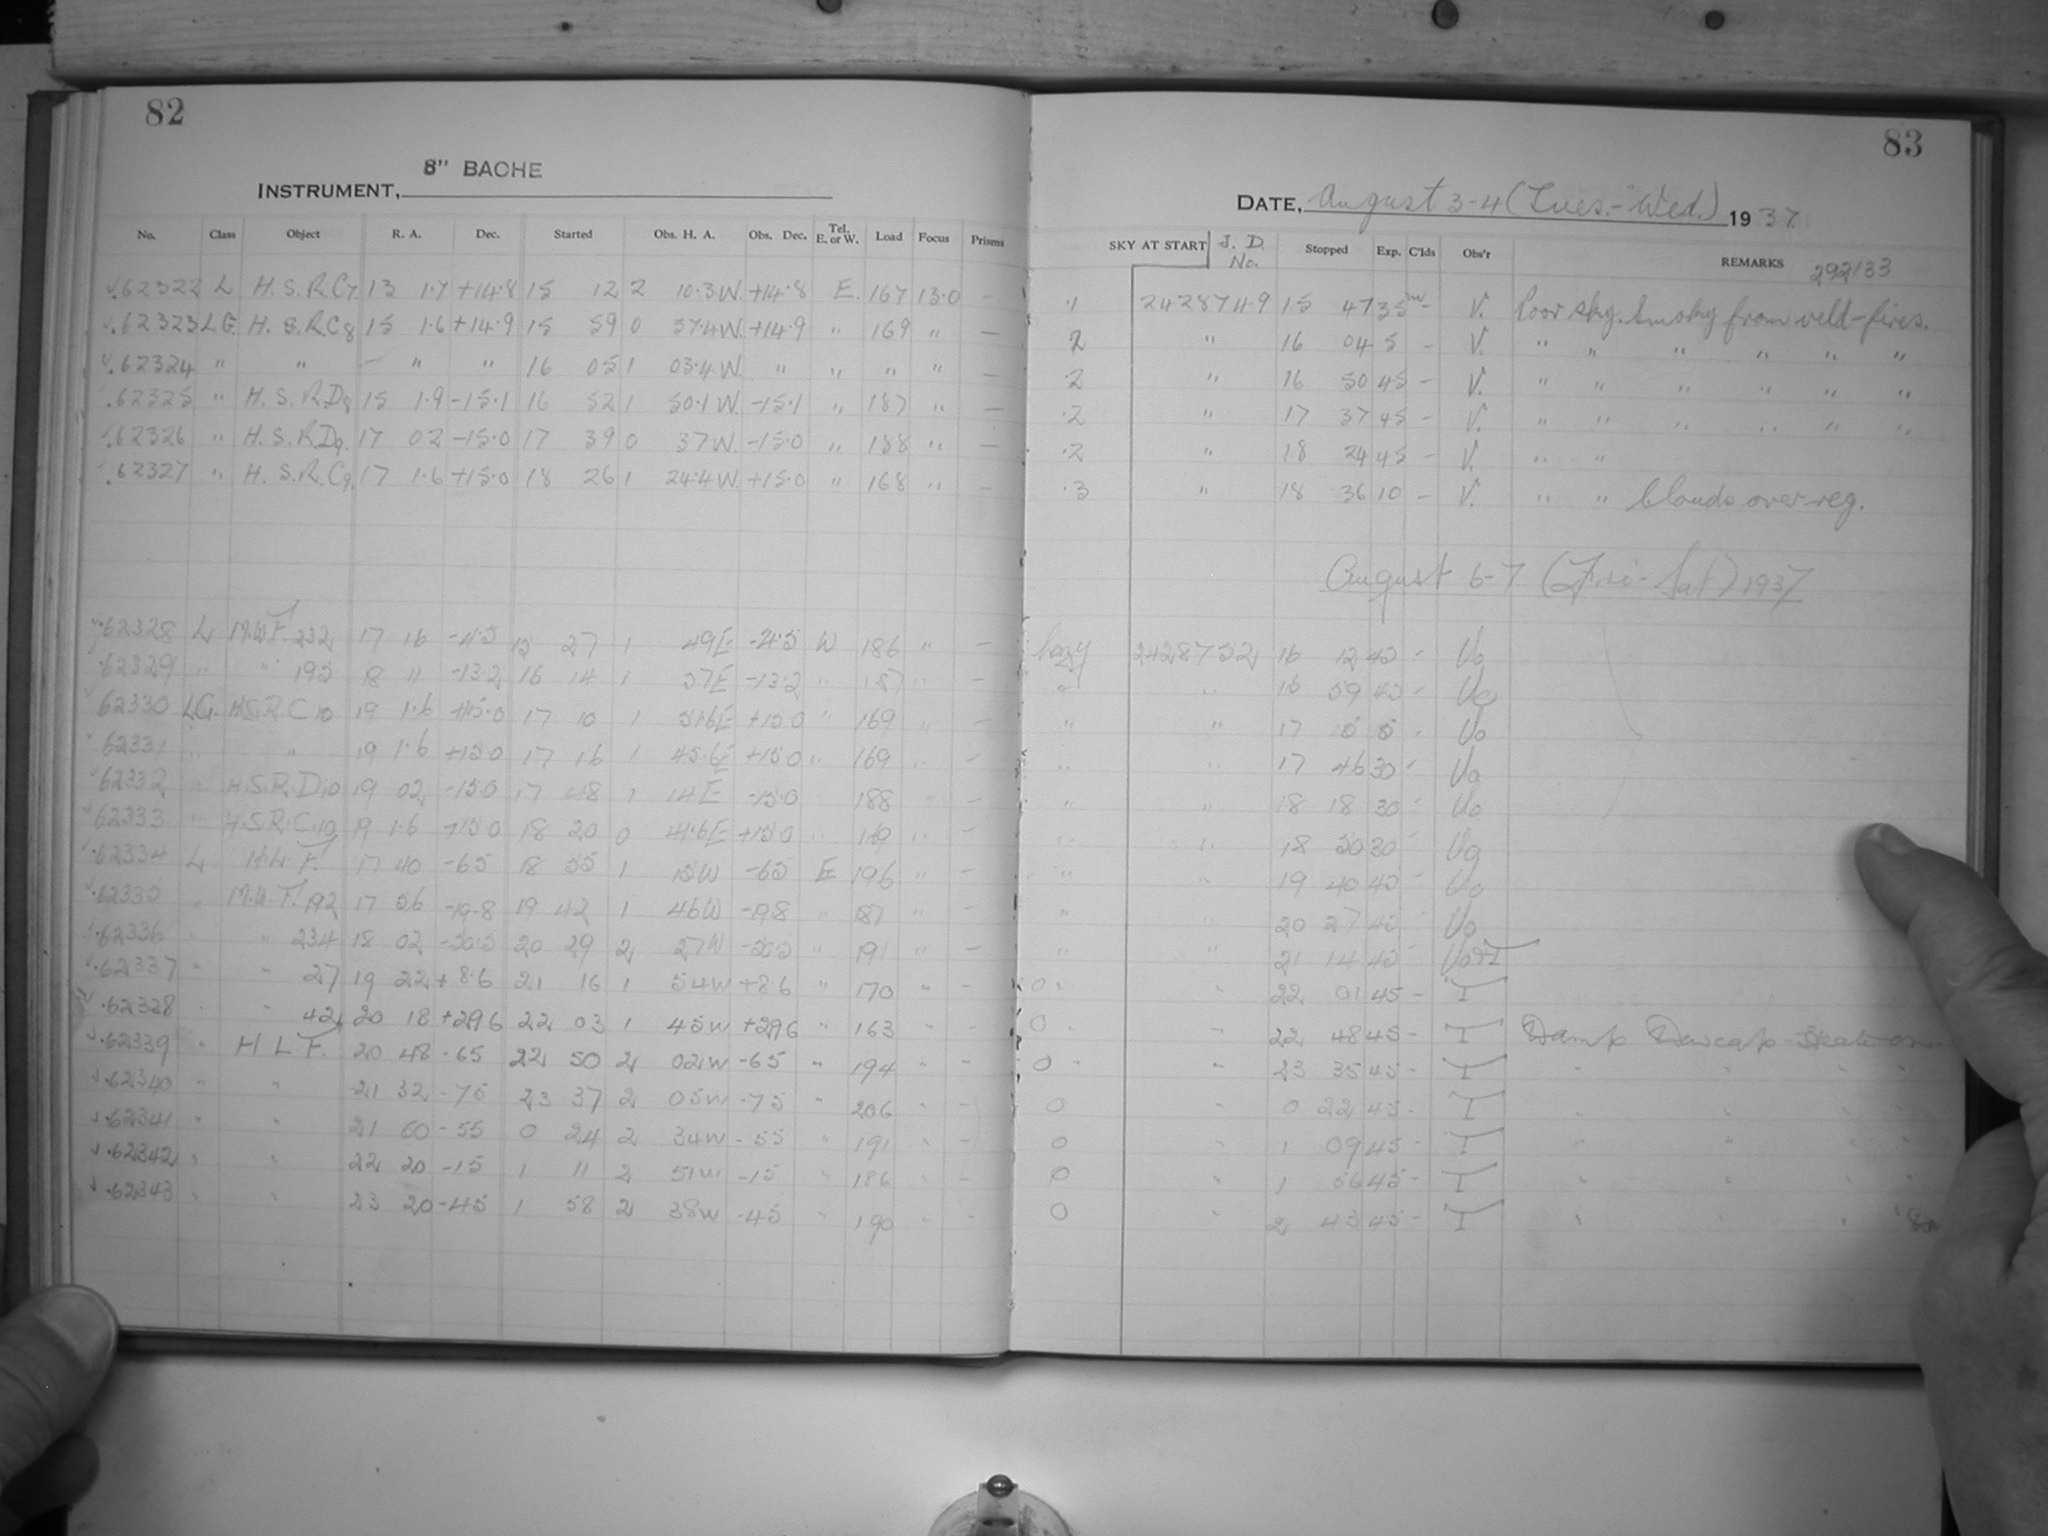 82
8" BACHE
INSTRUMENT,
No. Class Object R. A. Dec. Started Obs. H. A. Obs. Dec. Tel. E. or W. Load Focus Prisms
.62322 L H.S.R.C7 13 1.7 +14.8 15 12 2 10.3W. +14.8 E. 167 13.0 -
.62323 LG. H.S.R.C8 15 1.6 +14.9 15 59 0 57.4W. +14.9 " 169 " -
.62324 " " - " " 16 05 1 03.4W. " " " " -
.62325 " H.S.R.D8 15 1.9 -15.1 16 52 1 50.1W. -15.1 " 187 " -
.62326 " H.S.R.D9. 17 02 -15.0 17 39 0 37W. -15.0 " 188 " -
.62327 " H.S.R.C9. 17 1.6 +15.0 18 26 1 24.4W. +15.0 " 168 " -
.62328 L M.W.F. 232 17 16 -4.5 15 27 1 49E -4.5 W 186 " -
.62329 " " 195 18 11 -13.2 16 14 1 57E -13.2 " 187 " -
62330 LG. H.S.R.C10 19 1.6 +15.0 17 10 1 51.6E +15.0 " 169 " -
62331 " " 19 1.6 +15.0 17 16 1 45.6E +15.0 " 169 " -
62332 " H.S.R.D10 19 02 -15.0 17 48 1 14E -15.0 " 188 " -
62333 " H.S.R.C.10 19 1.6 +15.0 18 20 0 41.6E +15.0 " 169 " -
.62334 L H.L.F. 17 40 -65 18 55 1 15W -65 E 196 " -
.62335 " M.W.F. 192 17 56 -19.8 19 42 1 46W -19.8 " 187 " -
.62336 " " 234 18 02 -50.5 20 29 2 27W -50.5 " 191 " -
.62337 " " 27 19 22 +8.6 21 16 1 54W +8.6 " 170 " -
.62338 " " 42 20 18 +29.6 22 03 1 45W +29.6 " 163 " -
.62339 " H L F. 20 48 -65 22 50 2 02W -65 " 194 " -
.62340 " " 21 32 -75 23 37 2 05W -75 " 206 " -
.62341 " " 21 60 -55 0 24 2 34W -55 " 191 " -
.62342 " " 22 20 -15 1 11 2 51W -15 " 186 " -
.62343 " " 23 20 -45 1 58 2 38W -45 " 190 " -
83
DATE, August 3-4 (Tues.-Wed.) 1937
SKY AT START J. D. No. Stopped Exp. C'lds Obs'r REMARKS 292133
.1 2428749 15 47 35m - V. Poor sky. Smoky from veld-fires.
2 " 16 04 5 - V. " " " " " "
.2 " 16 50 45 - V. " " " " " "
.2 " 17 37 45 - V. " " " " " "
.2 " 18 24 45 - V. " "
.3 " 18 36 10 - V. " " Clouds over reg.
August 6-7 (Fri-Sat) 1937
hazy 2428752 16 12 45 - Vo
" " 16 59 45 - Vo
" " 17 15 5 - Vo
" " 17 46 30 - Vo
" " 18 18 30 - Vo
" " 18 50 30 - Vo
" " 19 40 45 - Vo
" " 20 27 45 - Vo
" " 21 14 45 - Vo+T
0 " 22 01 45 - T
0 " 22 48 45 - T Damp Dewcap-Heat on
0 " 23 35 45 - T " " " "
0 " 0 22 45 - T " " " "
0 " 1 09 45 - T " " " "
0 " 1 56 45 - T " " " "
0 " 2 43 45 - T " " "